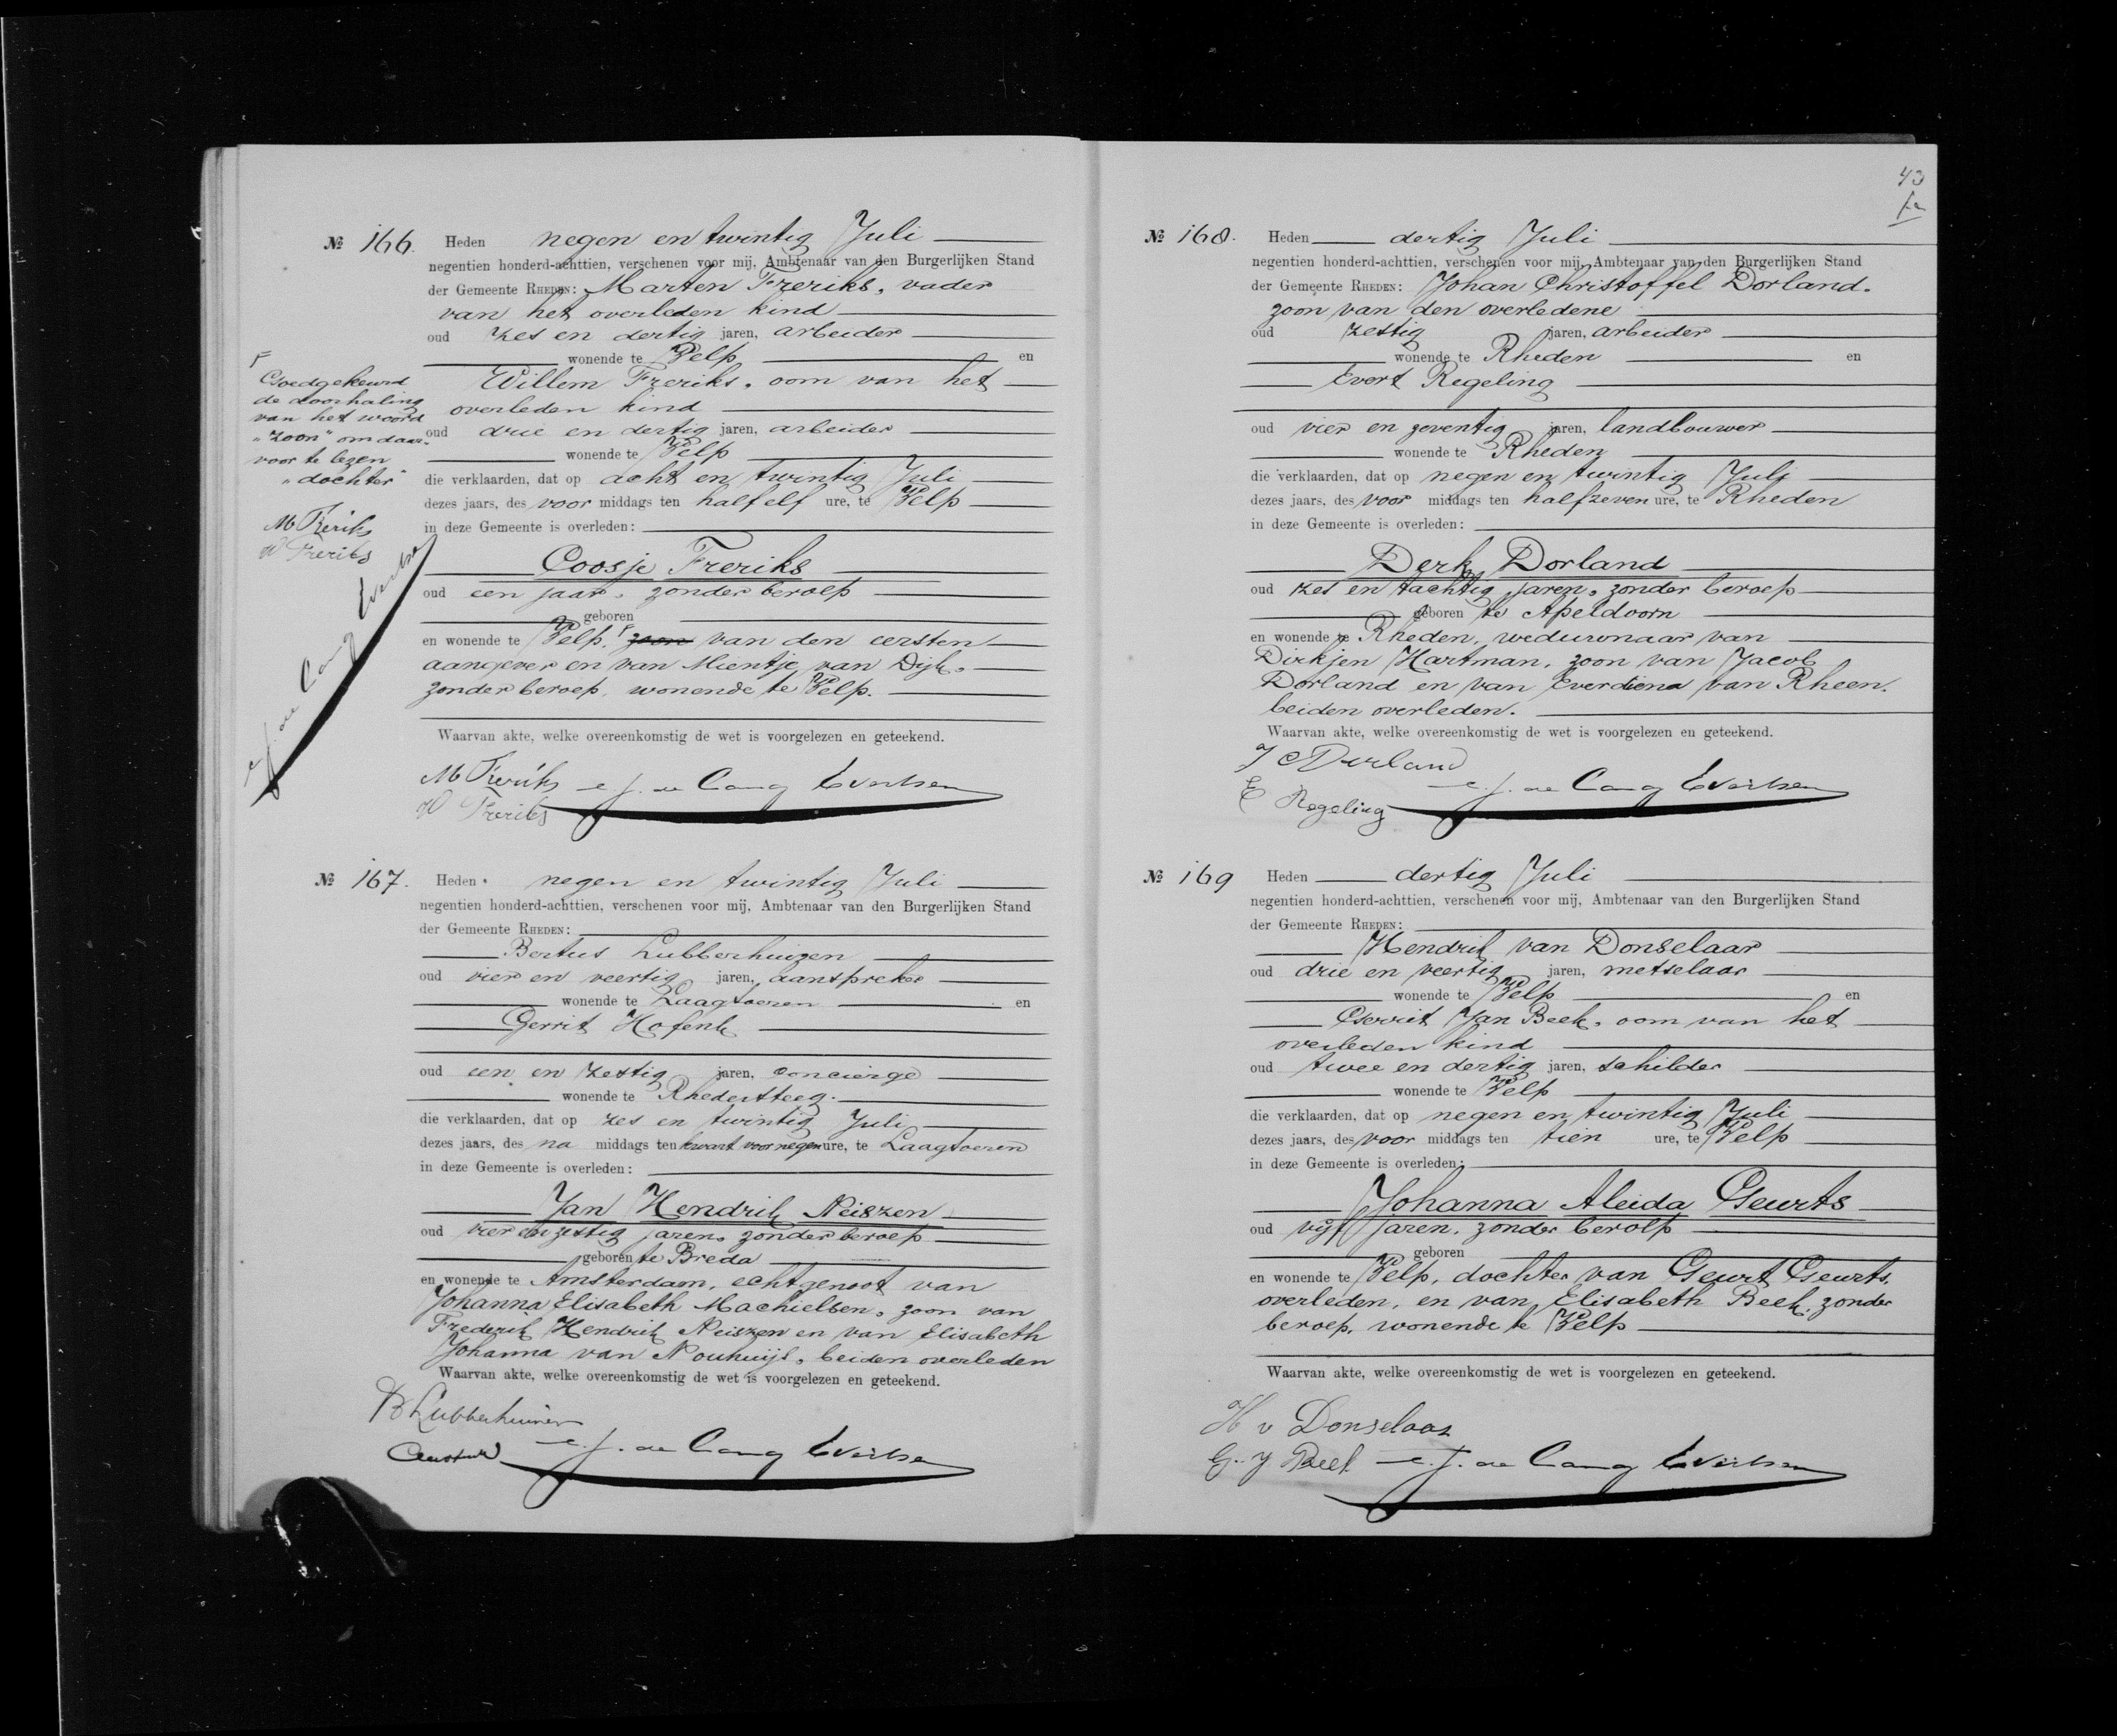 № 166. Heden negen en twintig Juli
negentien honderd-achttien, verschenen voor mij, Ambtenaar van den Burgerlijken Stand
der Gemeente RHEDEN: Marten Freriks, vader
van het overleden kind
oud zes en dertig jaren, arbeider
wonende te Velp en
Willem Freriks, oom van het
overleden kind
oud drie en dertig jaren, arbeider
wonende te Velp
die verklaarden, dat op acht en twintig Juli
dezes jaars, des voor middags ten half elf ure, te Velp
in deze Gemeente is overleden:
Coosje Freriks
oud een jaar, zonder beroep
geboren
en wonende te Velp, zoon van den eersten
aangever en van Mientje van Dijk,
zonder beroep, wonende te Velp.
Waarvan akte, welke overeenkomstig de wet is voorgelezen en geteekend.
M Freriks
W Freriks
Goedgekeurd
de doorhaling
van het woord
"zoon" om daar-
voor te lezen
"dochter"
M Freriks
W Freriks
№ 167. Heden negen en twintig Juli
negentien honderd-achttien, verschenen voor mij, Ambtenaar van den Burgerlijken Stand
der Gemeente RHEDEN:
Bertus Lubberhuizen
oud vier en veertig jaren, aanspreker
wonende te Laagsoeren en
Gerrit Hofenk
oud een en zestig jaren, concierge
wonende te Rhedersteeg.
die verklaarden, dat op zes en twintig Juli
dezes jaars, des na middags ten kwart voor negen ure, te Laagsoeren
in deze Gemeente is overleden:
Jan Hendrik Neiszen
oud vier en zestig jaren, zonder beroep
geboren te Breda
en wonende te Amsterdam, echtgenoot van
Johanna Elisabeth Machielsen, zoon van
Frederik Hendrik Neiszen en van Elisabeth
Johanna van Nouhuijs, beiden overleden
Waarvan akte, welke overeenkomstig de wet is voorgelezen en geteekend.
B Lubberhuizen
43
№ 168. Heden dertig Juli
negentien honderd-achttien, verschenen voor mij, Ambtenaar van den Burgerlijken Stand
der Gemeente RHEDEN: Johan Christoffel Dorland,
zoon van den overledene
oud zestig jaren, arbeider
wonende te Rheden en
Evert Regeling
oud vier en zeventig jaren, landbouwer
wonende te Rheden
die verklaarden, dat op negen en twintig Juli
dezes jaars, des voor middags ten half zeven ure, te Rheden
in deze Gemeente is overleden:
Derk Dorland
oud zes en tachtig jaren, zonder beroep
geboren te Apeldoorn
en wonende te Rheden, weduwnaar van
Dirkjen Hartman, zoon van Jacob
Dorland en van Everdiena van Rheen,
beiden overleden.
Waarvan akte, welke overeenkomstig de wet is voorgelezen en geteekend.
J C Dorland
E Regeling
№ 169 Heden dertig Juli
negentien honderd-achttien, verschenen voor mij, Ambtenaar van den Burgerlijken Stand
der Gemeente RHEDEN:
Hendrik van Donselaar
oud drie en veertig jaren, metselaar
wonende te Velp en
Gerrit Jan Beek, oom van het
overleden kind
oud twee en dertig jaren, schilder
wonende te Velp
die verklaarden, dat op negen en twintig Juli
dezes jaars, des voor middags ten tien ure, te Velp
in deze Gemeente is overleden:
Johanna Aleida Geurts
oud vijf jaren, zonder beroep
geboren
en wonende te Velp, dochter van Geurt Geurts,
overleden, en van Elisabeth Beek, zonder
beroep, wonende te Velp
Waarvan akte, welke overeenkomstig de wet is voorgelezen en geteekend.
H v Donselaar
G. J Beek